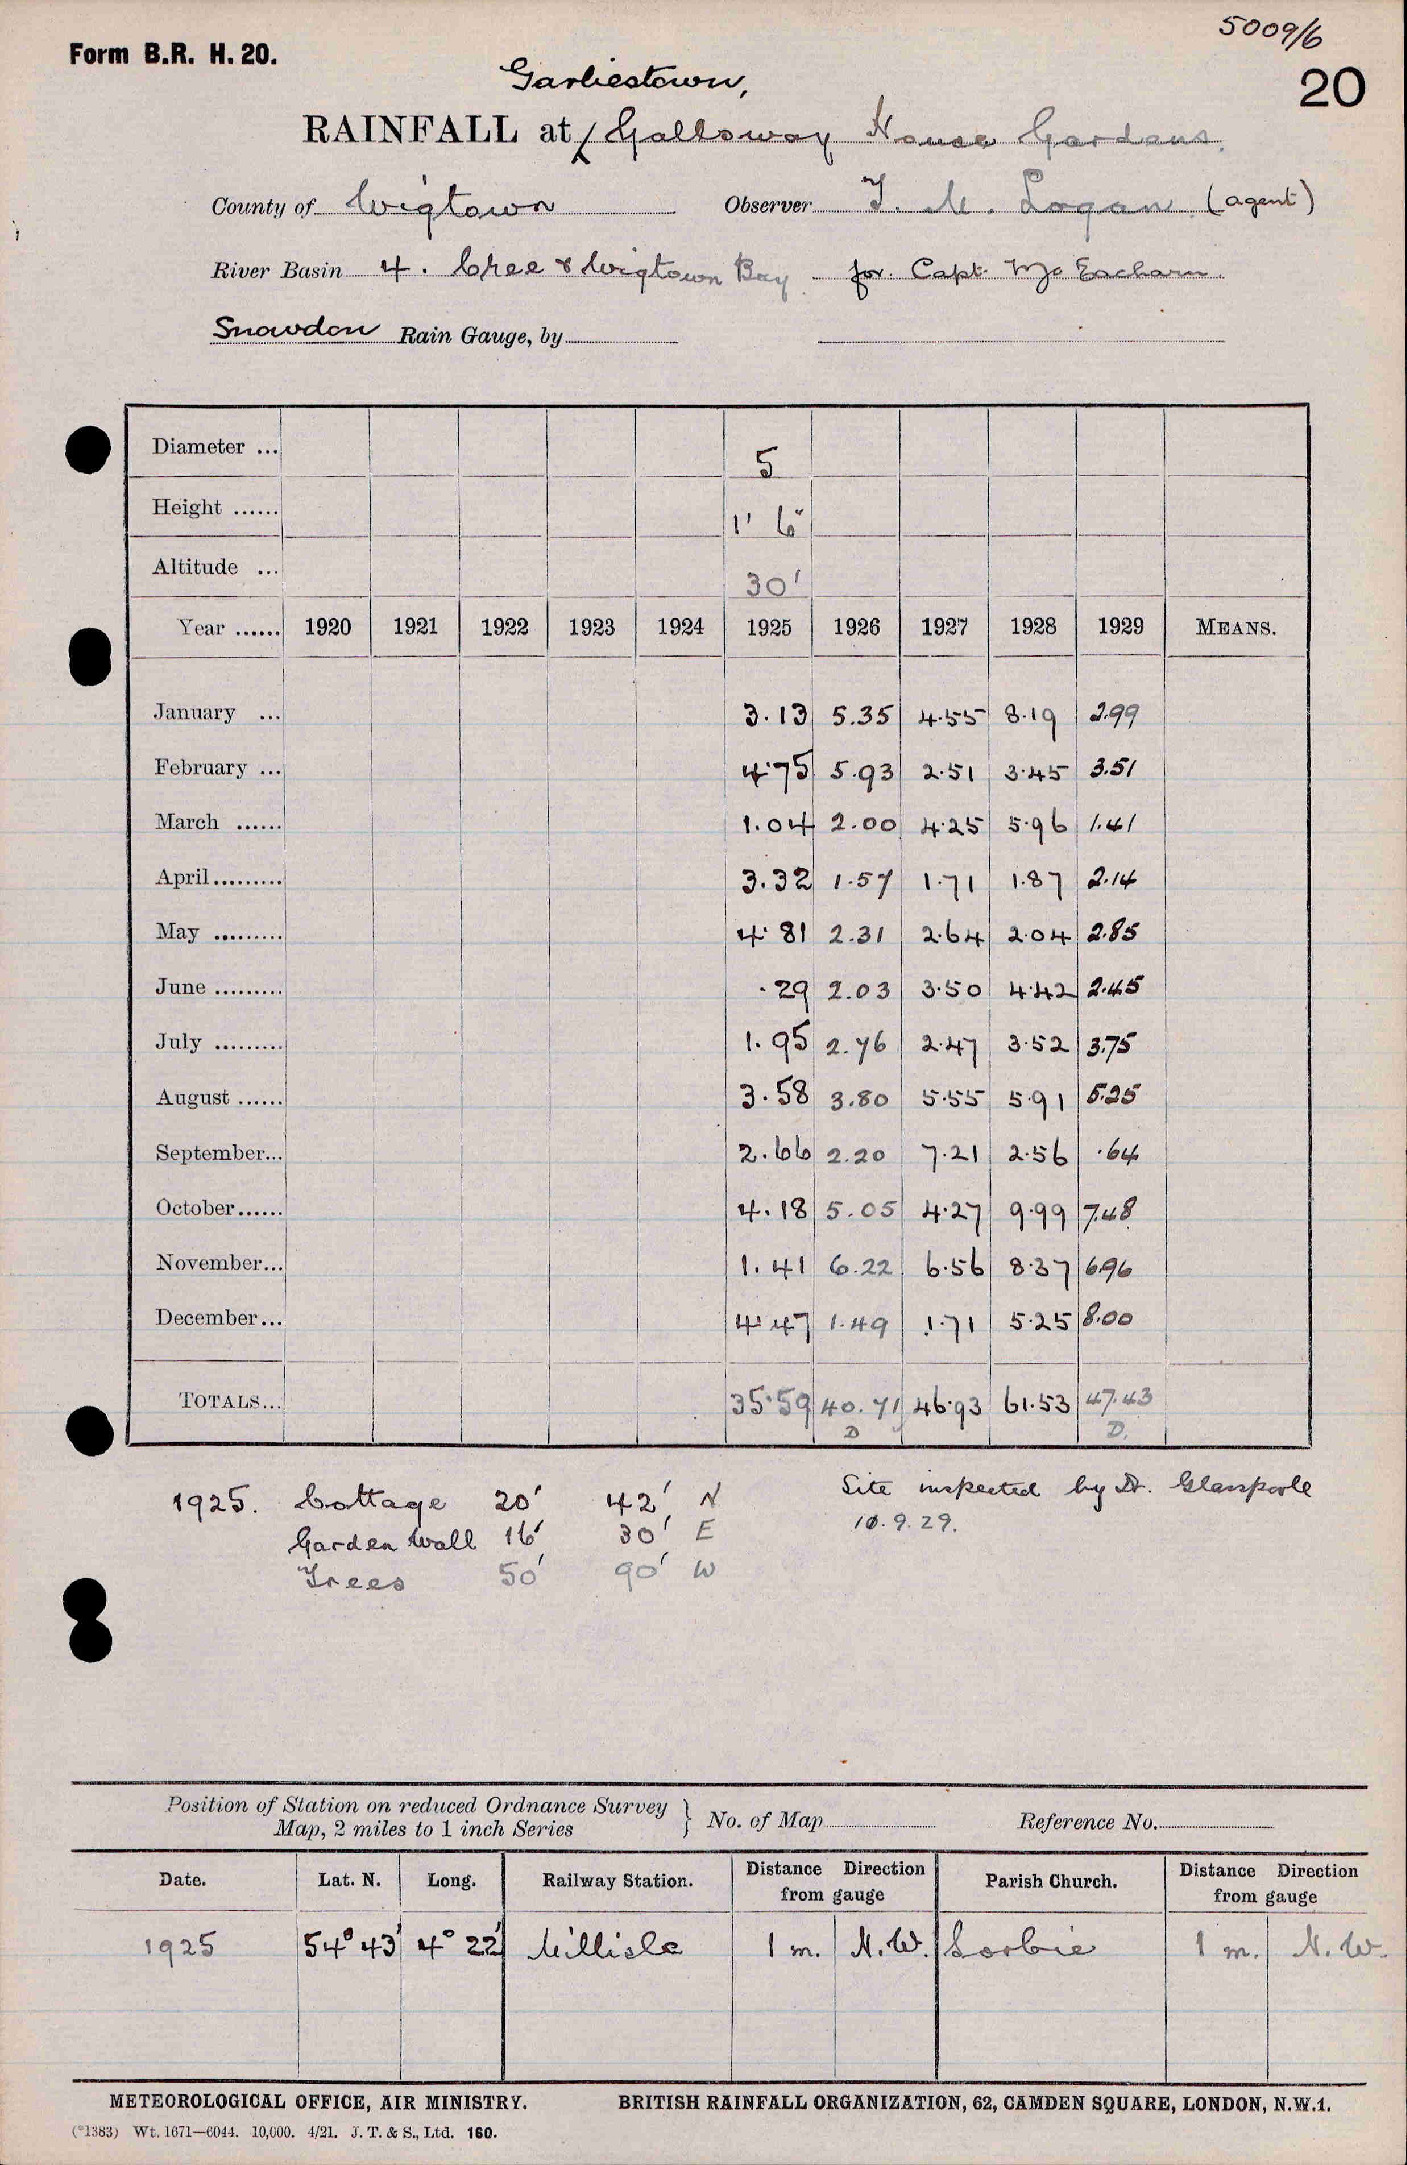 5009/6
Form B.R. H. 20.
20
Garliestown,
RAINFALL at Galloway House Gardens.
County of Wigtown Observer T. M. Logan (agent)
River Basin 4. Cree & Wigtown Bay for Capt. McEacharn
Snowdon Rain Gauge, by
Diameter ... 5
Height ...... 1' 6"
Altitude ... 30'
Year ...... 1920 1921 1922 1923 1924 1925 1926 1927 1928 1929 MEANS.
January ... 3.13 5.35 4.55 8.19 2.99
February ... 4.75 5.93 2.51 3.45 3.51
March ...... 1.04 2.00 4.25 5.96 1.41
April......... 3.32 1.57 1.71 1.87 2.14
May ......... 4.81 2.31 2.64 2.04 2.85
June ......... .29 2.03 3.50 4.42 2.45
July ......... 1.95 2.76 2.47 3.52 3.75
August ...... 3.58 3.80 5.55 5.91 5.25
September... 2.66 2.20 7.21 2.56 .64
October...... 4.18 5.05 4.27 9.99 7.48
November... 1.41 6.22 6.56 8.37 6.96
December... 4.47 1.49 1.71 5.25 8.00
TOTALS... 35.59 40.71 46.93 61.53 47.43
D D.
1925. Cottage 20' 42' N Site inspected by Dr. Glasspoole
Garden Wall 16' 30' E 10.9.29.
Trees 50' 90' W
Position of Station on reduced Ordnance Survey } No. of Map Reference No.
Map, 2 miles to 1 inch Series
Date. Lat. N. Long. Railway Station. Distance Direction from gauge Parish Church. Distance Direction from gauge
1925 54° 43' 4° 22' Millisle 1 m. N.W. Sorbie 1 m. N.W.
METEOROLOGICAL OFFICE, AIR MINISTRY. BRITISH RAINFALL ORGANIZATION, 62, CAMDEN SQUARE, LONDON, N.W.1.
(*1383) Wt. 1671—6044. 10,000. 4/21. J. T. & S., Ltd. 160.